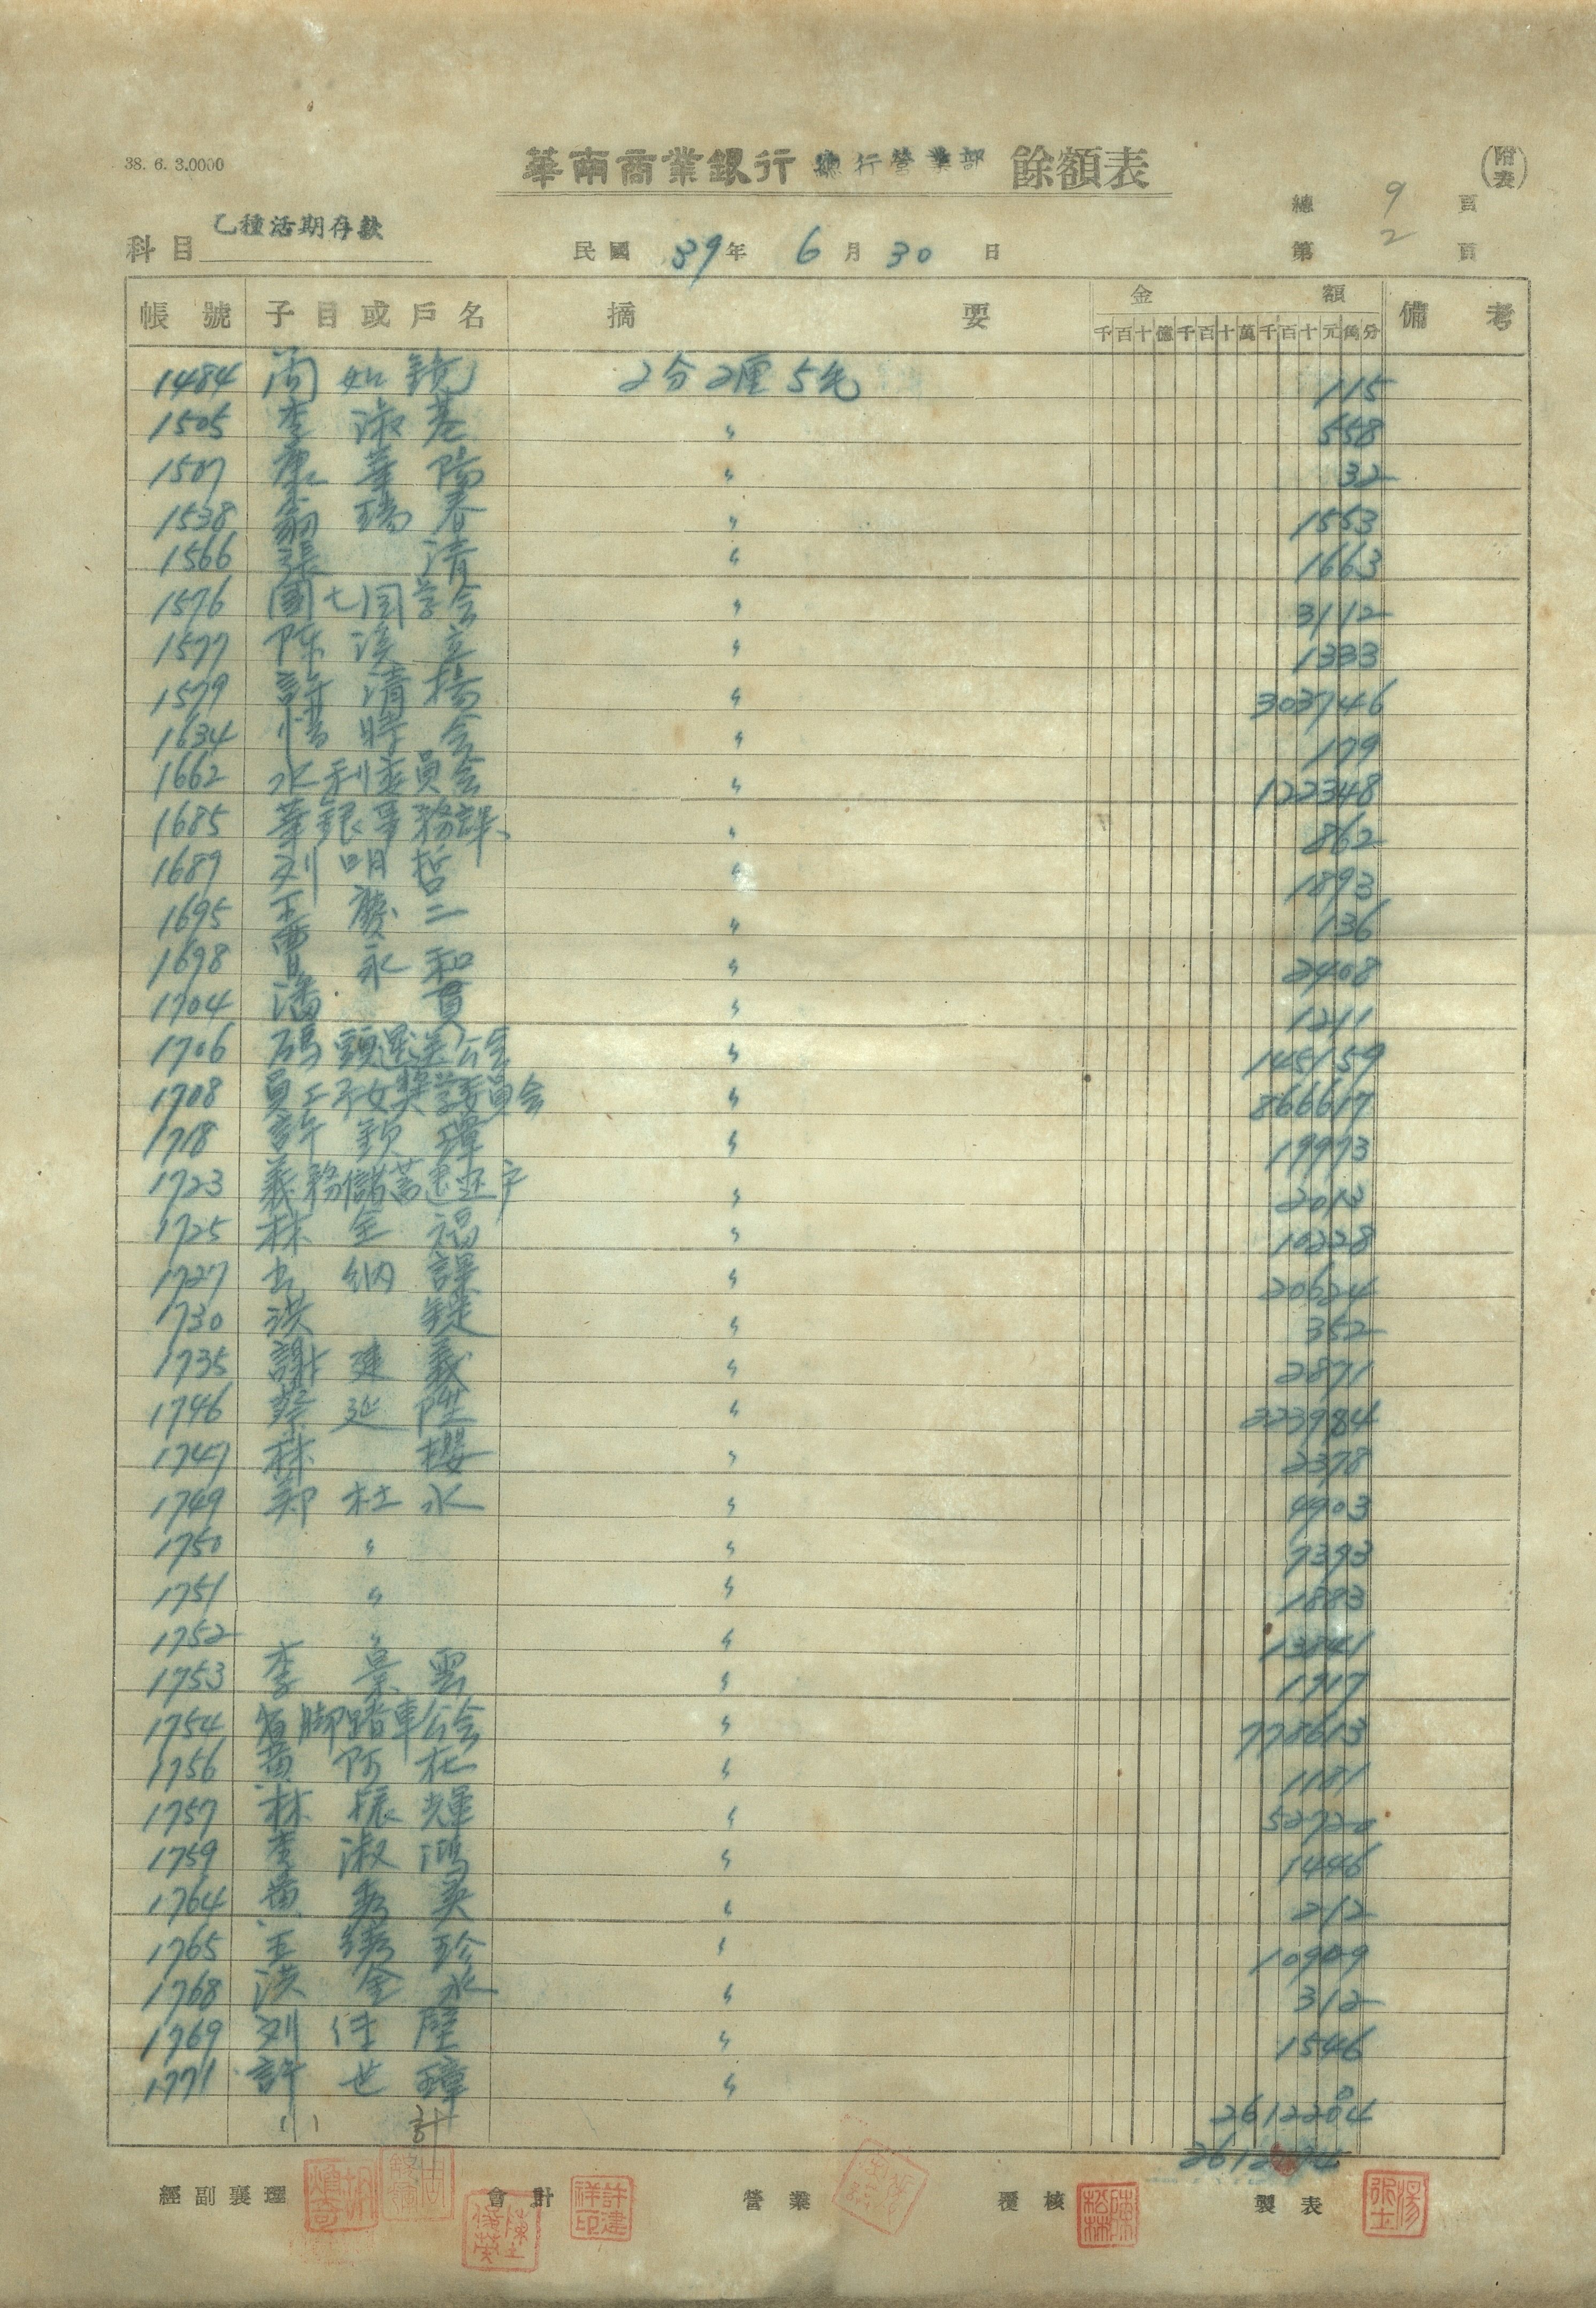 38. 6. 3.0000
華南商業銀行 總行營業部 餘額表
(附表)
總 9 頁
科目 乙種活期存款
民國 39年 6月 30日
第 2 頁
帳號 子目或戶名 摘要 金額 備考
千百十億千百十萬千百十元角分
1484 周如鏡 2分2厘5毛 115
1505 李淑 〃 558
1507 康華陽 〃 32
1538 翁瑞春 〃 1553
1566 張清 〃 1663
1576 國七同学会 〃 3112
1577 陈溪立 〃 1333
1579 許清揚 〃 303746
1634 惜時会 〃 179
1662 水利委員会 〃 122348
1685 華銀事務課 〃 862
1689 刘明哲 〃 1893
1695 王慶二 〃 136
1698 曹永和 〃 2408
1704 潘貫 〃 1211
1706 碼頭運送公会 〃 145159
1708 員工子女獎学委員会 〃 866617
1718 許欽璋 〃 19973
1723 義務儲蓄 〃 2013
1725 林金福 〃 10228
1727 出納課 〃 20624
1730 洪錠 〃 352
1735 謝建義 〃 2871
1746 蔡延陞 〃 223984
1747 林櫻 〃 2378
1749 郑杜水 〃 4903
1750 〃 〃 7393
1751 〃 〃 1883
1752 〃 〃 13841
1753 李景雲 〃 1917
1754 省脚踏車公会 〃 778613
1756 黄阿杜 〃 1181
1757 林振輝 〃 52720
1759 李淑鴻 〃 1446
1764 黄秀英 〃 212
1765 王绣珍 〃 10909
1768 洪金水 〃 312
1769 刘佳璧 〃 1546
1771 許世璋 〃 0
小計 2612204
經副襄理 會計 許建祥印 營業 覆核 陳松林 製表